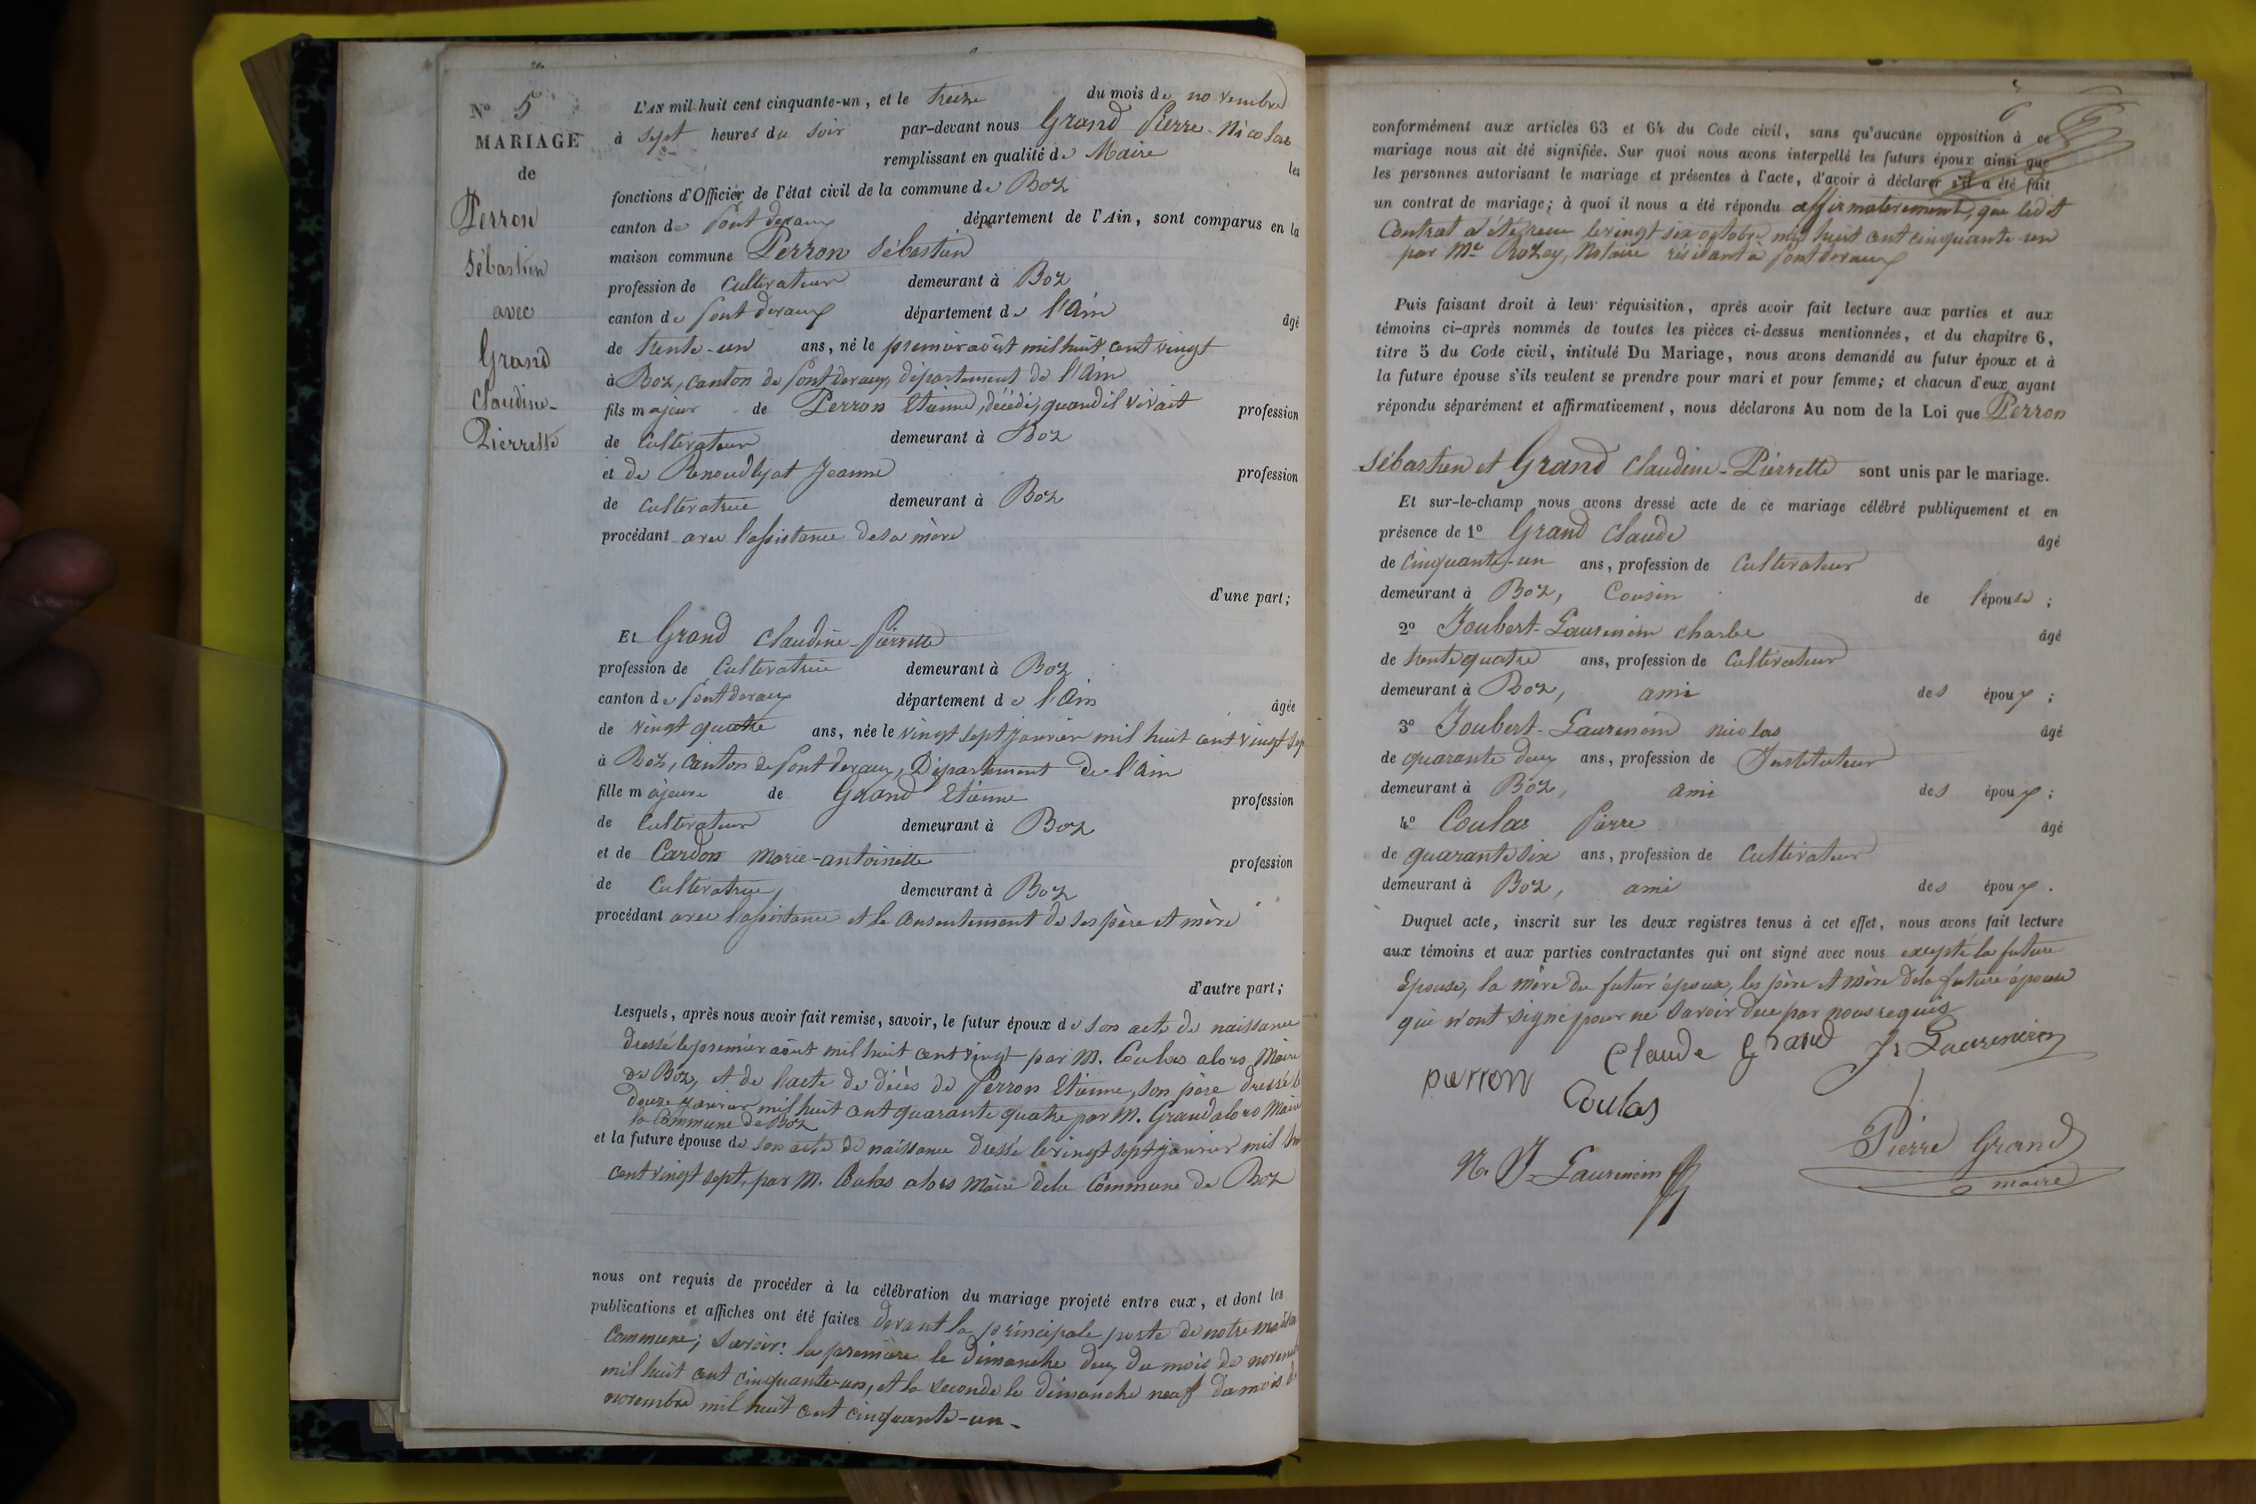 N° 5
MARIAGE
de
Perron
Sébastien
avec
Grand
Claudine-
Pierrette
L'AN mil huit cent cinquante-un, et le treize du mois de novembre
à sept heures du soir par-devant nous Grand Pierre-Nicolas
remplissant en qualité de Maire les
fonctions d'Officier de l'état civil de la commune de Boz
canton de Pont devaux département de l'Ain, sont comparus en la
maison commune Perron Sébastien
profession de Cultivateur demeurant à Boz
canton de Pont devaux département de l'Ain âgé
de trente-un ans, né le premier août mil huit cent vingt
à Boz, canton de Pont devaux, département de l'Ain
fils majeur de Perron Etienne, décédé, quand il vivait profession
de Cultivateur demeurant à Boz
et de Renoud lyat Jeanne profession
de Cultivatrice demeurant à Boz
procédant avec l'assistance de sa mère
d'une part;
Et Grand Claudine-Pierrette
profession de Cultivatrice demeurant à Boz
canton de Pont devaux département de l'Ain âgée
de vingt quatre ans, née le vingt sept janvier mil huit cent vingt sep
à Boz, canton de Pont devaux, Département de l'Ain
fille majeure de Grand Etienne profession
de Cultivateur demeurant à Boz
et de Cardon Marie-antoinette profession
de Cultivatrice, demeurant à Boz
procédant avec l'assistance et le consentement de ses père et mère
d'autre part;
Lesquels, après nous avoir fait remise, savoir, le futur époux de son acte de naissance
dressé le premier août mil huit cent vingt par M. Coulas alors Maire
de Boz, et de l'acte de décès de Perron Etienne, son père dressé le
douze janvier mil huit cent quarante quatre par M. Grand alors Maire
la Commune de Boz
et la future épouse de son acte de naissance dressé le vingt sept janvier mil
cent vingt sept, par M. Coulas alors Maire de la Commune de Boz
nous ont requis de procéder à la célébration du mariage projeté entre eux, et dont les
publications et affiches ont été faites devant la principale porte de notre maison
Commune; savoir: la première le dimanche deux du mois de novemb
mil huit cent cinquante-un, et la seconde le dimanche neuf du mois de
novembre mil huit cent cinquante-un-
6
conformément aux articles 63 et 64 du Code civil, sans qu'aucune opposition à ce
mariage nous ait été signifiée. Sur quoi nous avons interpellé les futurs époux ainsi que
les personnes autorisant le mariage et présentes à l'acte, d'avoir à déclarer s'il a été fait
un contrat de mariage; à quoi il nous a été répondu affirmativement, que ledit
Contrat a été reçu le vingt six octobre mil huit cent cinquante un
par Me Rozay, Notaire résidant à Pont devaux
Puis faisant droit à leur réquisition, après avoir fait lecture aux parties et aux
témoins ci-après nommés de toutes les pièces ci-dessus mentionnées, et du chapitre 6,
titre 5 du Code civil, intitulé Du Mariage, nous avons demandé au futur époux et à
la future épouse s'ils veulent se prendre pour mari et pour femme; et chacun d'eux ayant
répondu séparément et affirmativement, nous déclarons Au nom de la Loi que Perron
Sébastien et Grand Claudine-Pierrette sont unis par le mariage.
Et sur-le-champ nous avons dressé acte de ce mariage célébré publiquement et en
présence de 1° Grand Claude âgé
de cinquante-un ans, profession de Cultivateur
demeurant à Boz, Cousin de l'épouse;
2° Joubert-Laurencin Charles âgé
de trente quatre ans, profession de Cultivateur
demeurant à Boz, ami des époux;
3° Joubert-Laurencin nicolas âgé
de quarante deux ans, profession de Instituteur
demeurant à Boz, ami des époux;
4° Coulas Pierre âgé
de quarante six ans, profession de Cultivateur
demeurant à Boz, ami des époux.
Duquel acte, inscrit sur les deux registres tenus à cet effet, nous avons fait lecture
aux témoins et aux parties contractantes qui ont signé avec nous excepté la future
Epouse, la mère du futur époux, les père et mère de la future épouse
qui n'ont signé pour ne savoir de ce par nous requis
Claude Grand Jt Laurencin
perron Coulas
Pierre Grand
N. Jt Laurencin maire